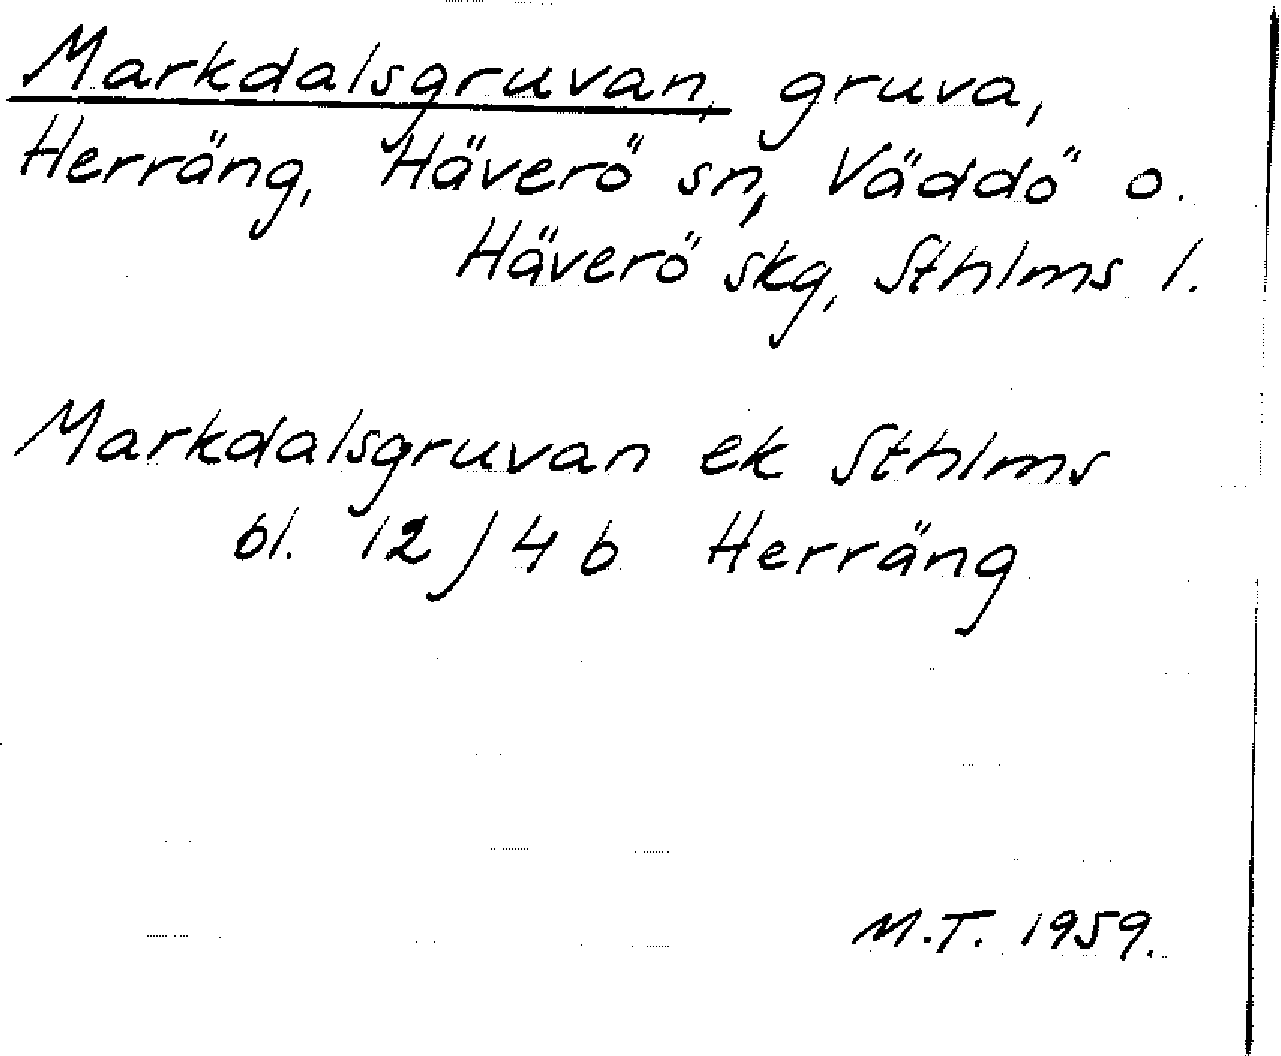 Markdalsgruvan, gruva,
Herräng, Häverö sn, Väddö o.
Häverö skg, Sthlms l.
Markdalsgruvan ek Sthlms
bl. 12 J 4 b Herräng
M.T. 1959.